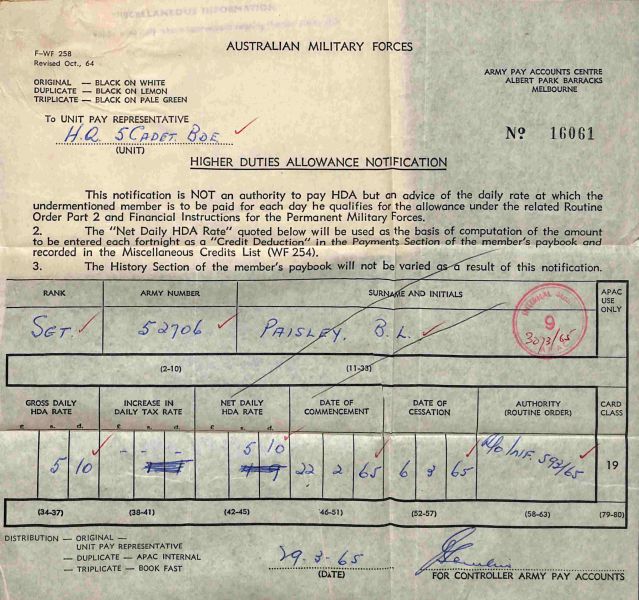 MISCELLANEOUS INFORMATION
AUSTRALIAN MILITARY FORCES
F—WF 258
Revised Oct., 64
ORIGINAL — BLACK ON WHITE
DUPLICATE — BLACK ON LEMON
TRIPLICATE — BLACK ON PALE GREEN
ARMY PAY ACCOUNTS CENTRE
ALBERT PARK BARRACKS
MELBOURNE
To UNIT PAY REPRESENTATIVE
H.Q 5 CADET BDE
(UNIT)
Nº 16061
HIGHER DUTIES ALLOWANCE NOTIFICATION
This notification is NOT an authority to pay HDA but an advice of the daily rate at which the
undermentioned member is to be paid for each day he qualifies for the allowance under the related Routine
Order Part 2 and Financial Instructions for the Permanent Military Forces.
2. The "Net Daily HDA Rate" quoted below will be used as the basis of computation of the amount
to be entered each fortnight as a "Credit Deduction" in the Payments Section of the member's paybook and
recorded in the Miscellaneous Credits List (WF 254).
3. The History Section of the member's paybook will not be varied as a result of this notification.
RANK ARMY NUMBER SURNAME AND INITIALS APAC USE ONLY
SGT. 52706 PAISLEY. B.L.
9
3073/65
(2-10) (11-33)
GROSS DAILY HDA RATE INCREASE IN DAILY TAX RATE NET DAILY HDA RATE DATE OF COMMENCEMENT DATE OF CESSATION AUTHORITY (ROUTINE ORDER) CARD CLASS
£ s. d. £ s. d. £ s. d.
5 10 - - - 5 10 22 2 65 6 3 65 592/65 19
(34-37) (38-41) (42-45) (46-51) (52-57) (58-63) (79-80)
DISTRIBUTION — ORIGINAL —
UNIT PAY REPRESENTATIVE
— DUPLICATE — APAC INTERNAL
— TRIPLICATE — BOOK FAST
29-3-65
(DATE)
FOR CONTROLLER ARMY PAY ACCOUNTS